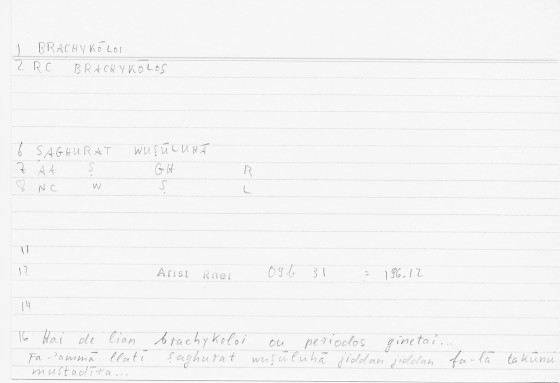 1 BRACHYKŌLOI
2 RC BRACHYKŌLOS
6 ṢAGHURAT WUṢŪLUHĀ
7 AA Ṣ GH R
8 NC W Ṣ L
11
12 Arist Rhet 09b 31 = 196.12
14
16 Hai de lian brachykoloi ou periodos ginetai...
Fa-'ammā llatī ṣaghurat wuṣūluhā jiddan jiddan fa-lā takūnu
mustadīra...